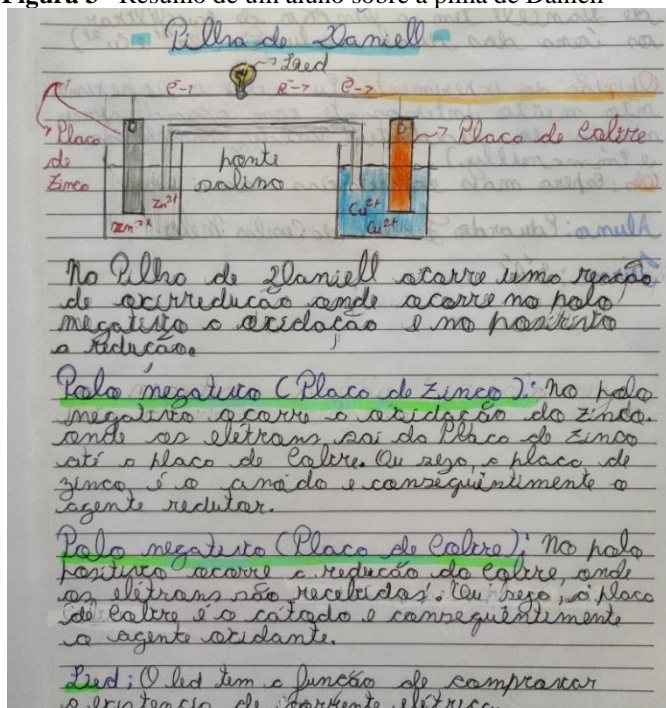 Figura 3 - Resumo de um aluno sobre a pilha de Daniell
Pilha de Daniell
Led
e-→ e-→ e-→
Placa de Zinco
Placa de Cobre
ponte salina
Zn2+
Zn2+
Cu2+
Cu2+
Na Pilha de Daniell ocorre uma reação
de oxirredução onde ocorre no polo
negativo a oxidação e no positivo
a redução.
Polo negativo (Placa de Zinco): No polo
negativo ocorre a oxidação do zinco.
onde os elétrons sai da Placa de Zinco
até a placa de Cobre. Ou seja, a placa de
zinco é o anodo e consequintimente o
agente redutor.
Polo negativo (Placa de Cobre): No polo
positivo ocorre a redução do Cobre, onde
os elétrons são recebidos. Ou seja, a placa
de Cobre é o cátodo e consequintimente
o agente oxidante.
Led: O led tem a função de comprovar
a existencia de corrente elétrica